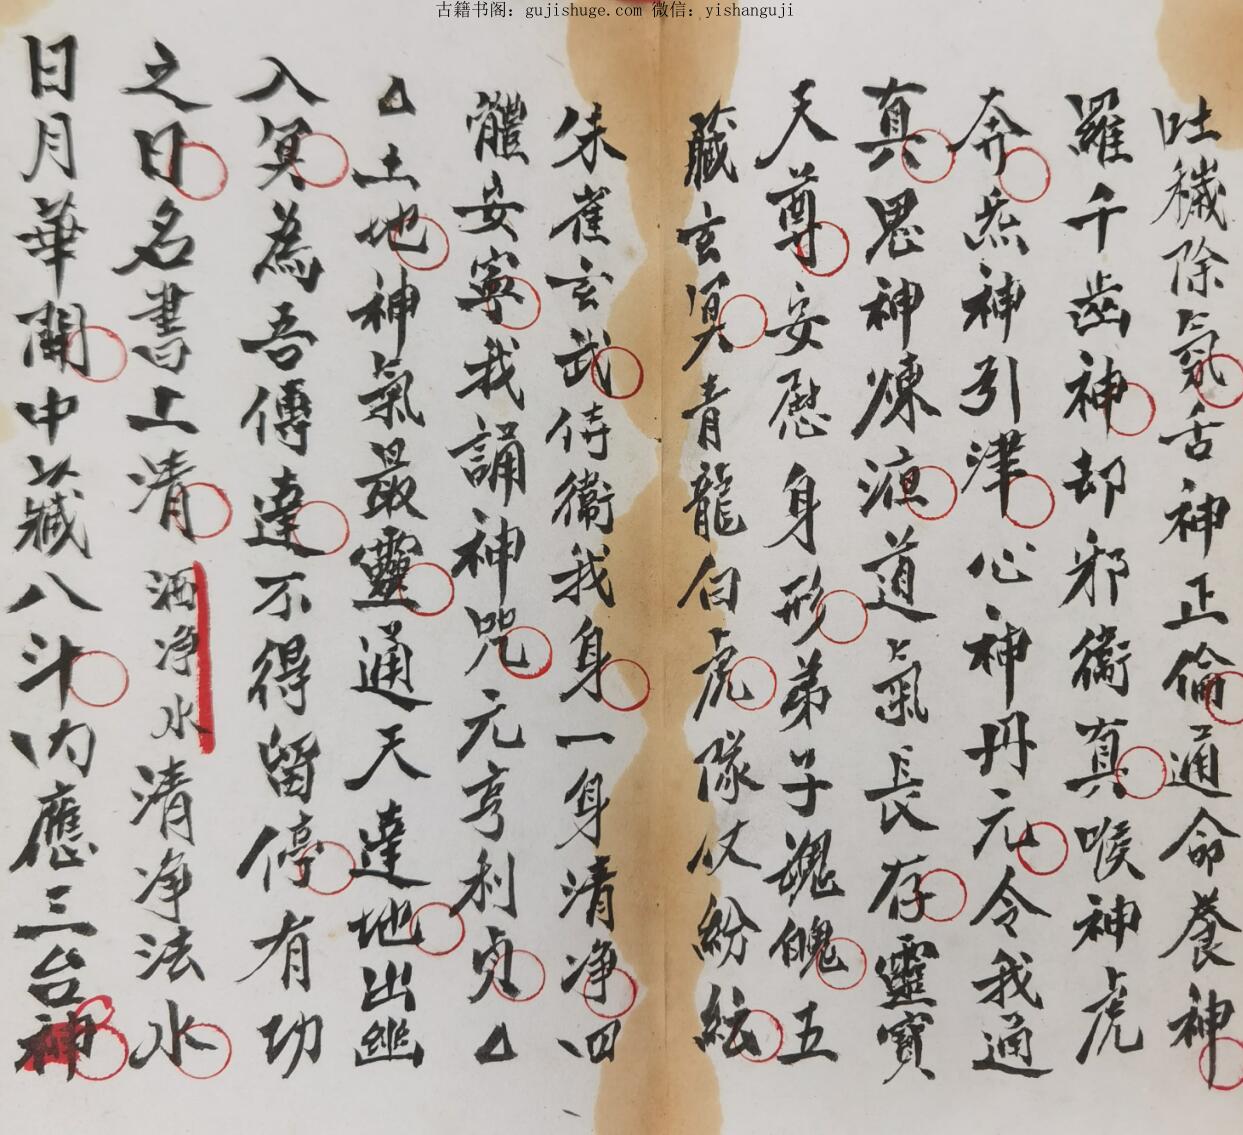 古籍书阁：gujishuge.com 微信：yishanguji
吐穢除氛舌神正倫通命養神
羅千齒神却邪衞真喉神虎
奔炁神引津心神丹元令我通
真思神煉液道氣長存靈寶
天尊安慰身形弟子魂魄五
藏玄冥青龍白虎隊仗紛紜
朱雀玄武侍衞我身一身清净四
體安寧我誦神咒元亨利貞
土地神氣最靈通天達地出幽
入冥為吾傳達不得留停有功
之日名書上清 洒净水 清净法水
日月華開中藏八斗内應三台神